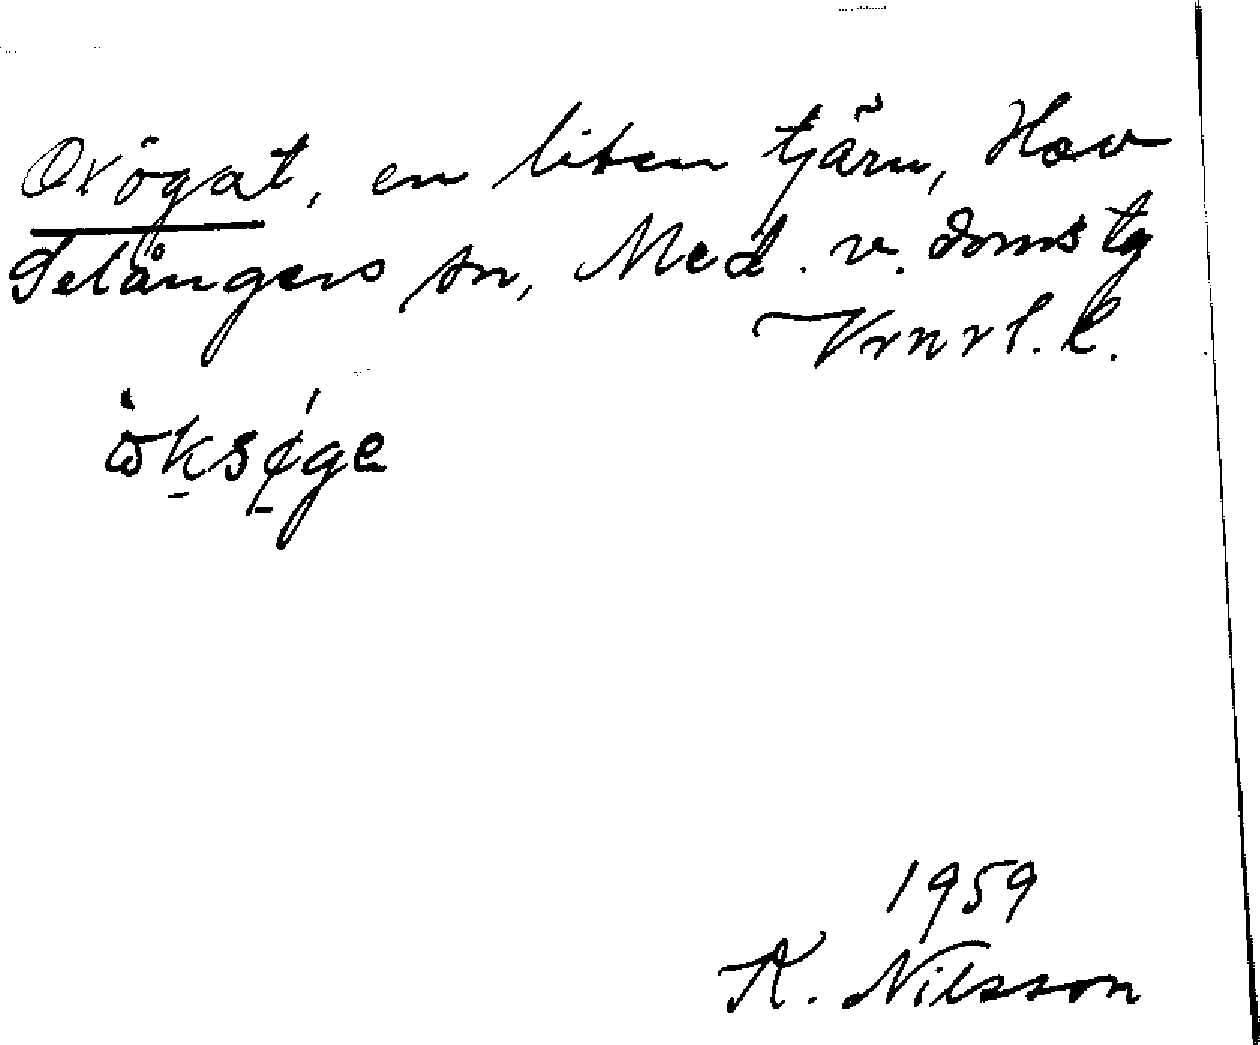 Oxögat, en liten tjärn, Hov
Selångers sn, Med. v. domstg
Vrnrl. l.
öksøge
1959
K. Nilsson